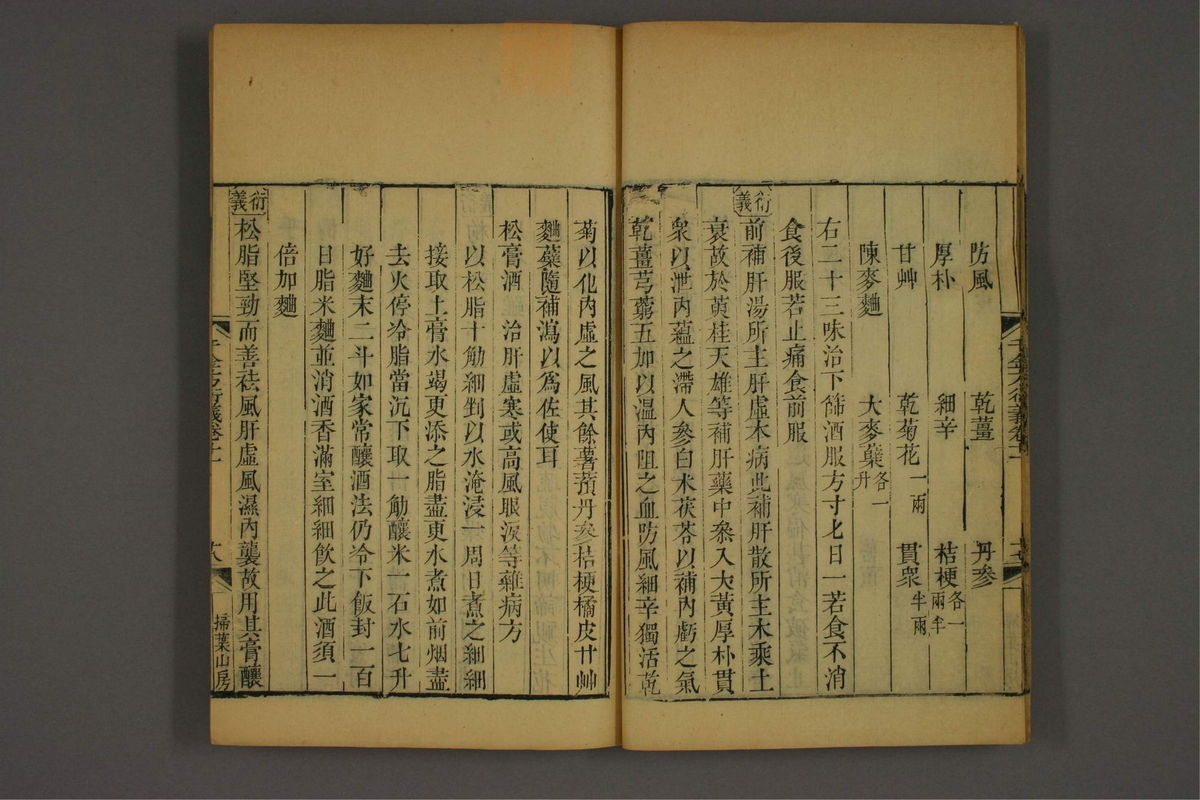 防風 乾薑 丹參
厚朴 細辛 桔梗各一兩半
甘艸 乾菊花一兩 貫衆半兩
陳麥麯 大麥蘗各一升
右二十三味治下篩酒服方寸匕日一若食不消
食後服若止痛食前服
衍義
前補肝湯所主肝虛本病此補肝散所主木乘土
衰故於萸桂天雄等補肝藥中叅入大黃厚朴貫
衆以泄內蘊之滯人參白朮茯苓以補內虧之氣
乾薑芎藭五加以溫內阻之血防風細辛獨活乾
菊以化內虛之風其餘薯蕷丹參桔梗橘皮甘艸
麯蘗隨補瀉以爲佐使耳
松膏酒 治肝虛寒或高風眼淚等雜病方
以松脂十觔細剉以水淹浸一周日煮之細細
接取上膏水竭更添之脂盡更水煮如前烟盡
去火停冷脂當沉下取一觔釀米一石水七升
好麯末二斗如家常釀酒法仍冷下飯封一百
日脂米麯並消酒香滿室細細飲之此酒須一
倍加麯
衍義
松脂堅勁而善祛風肝虛風濕內襲故用其膏釀
千金方衍義卷十一
十八
掃葉山房